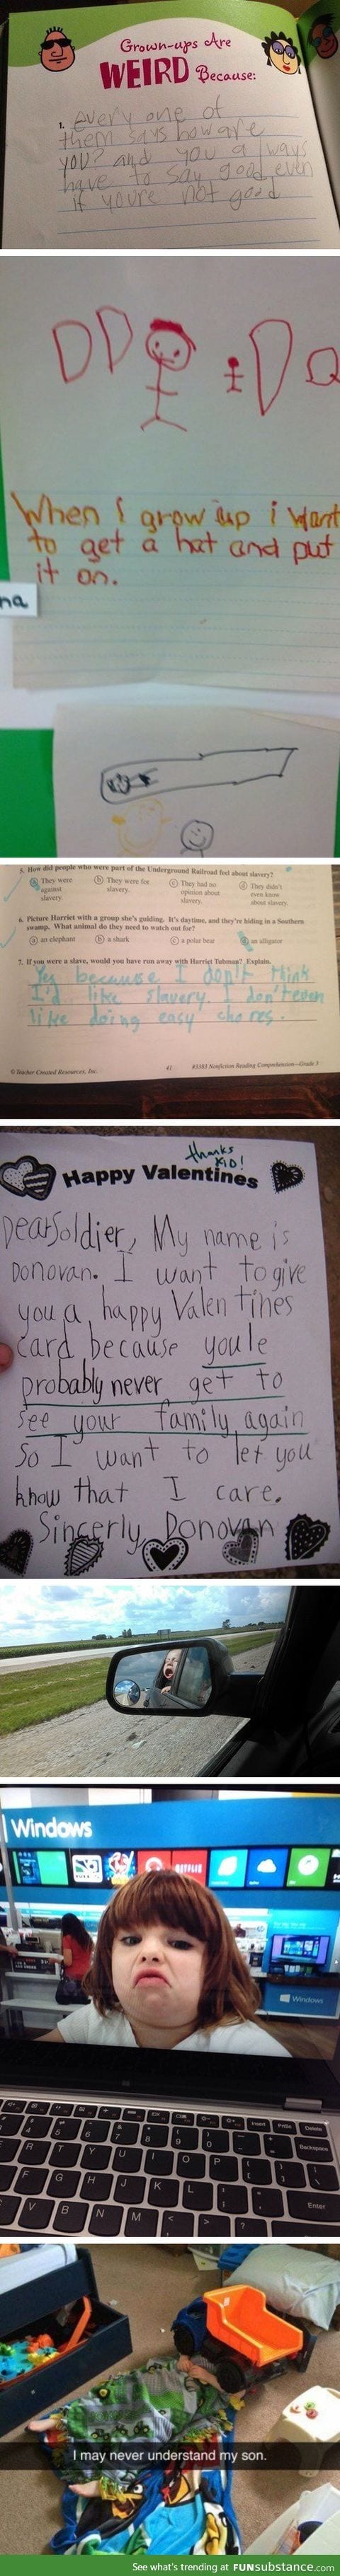 Grown-ups Are
WEIRD Because:
1. every one of
them says how are
you? and you always
have to say good even
if youre not good
When I grow up i want
to get a hat and put
it on.
na
5. How did people who were part of the Underground Railroad feel about slavery?
a They were against slavery.
b They were for slavery.
c They had no opinion about slavery.
d They didn't even know about slavery.
6. Picture Harriet with a group she's guiding. It's daytime, and they're hiding in a Southern
swamp. What animal do they need to watch out for?
a an elephant b a shark c a polar bear an alligator
7. If you were a slave, would you have run away with Harriet Tubman? Explain.
Yes because I don't think
I'd like slavery. I don't even
like doing easy chores.
© Teacher Created Resources, Inc. 41 #3383 Nonfiction Reading Comprehension—Grade 3
thanks
KID!
Happy Valentines
Dear Soldier, My name is
Donovan. I want to give
you a happy Valentines
card because youle
probably never get to
see your family again
So I want to let you
know that I care.
Sincerly, Donovan
Windows
NETFLIX
Windows
Insert PrtSc Delete
4 5 6 7 8 9 0 Backspace
R T Y U I O P
F G H J K L Enter
V B N M < > ?
I may never understand my son.
See what's trending at FUNsubstance.com